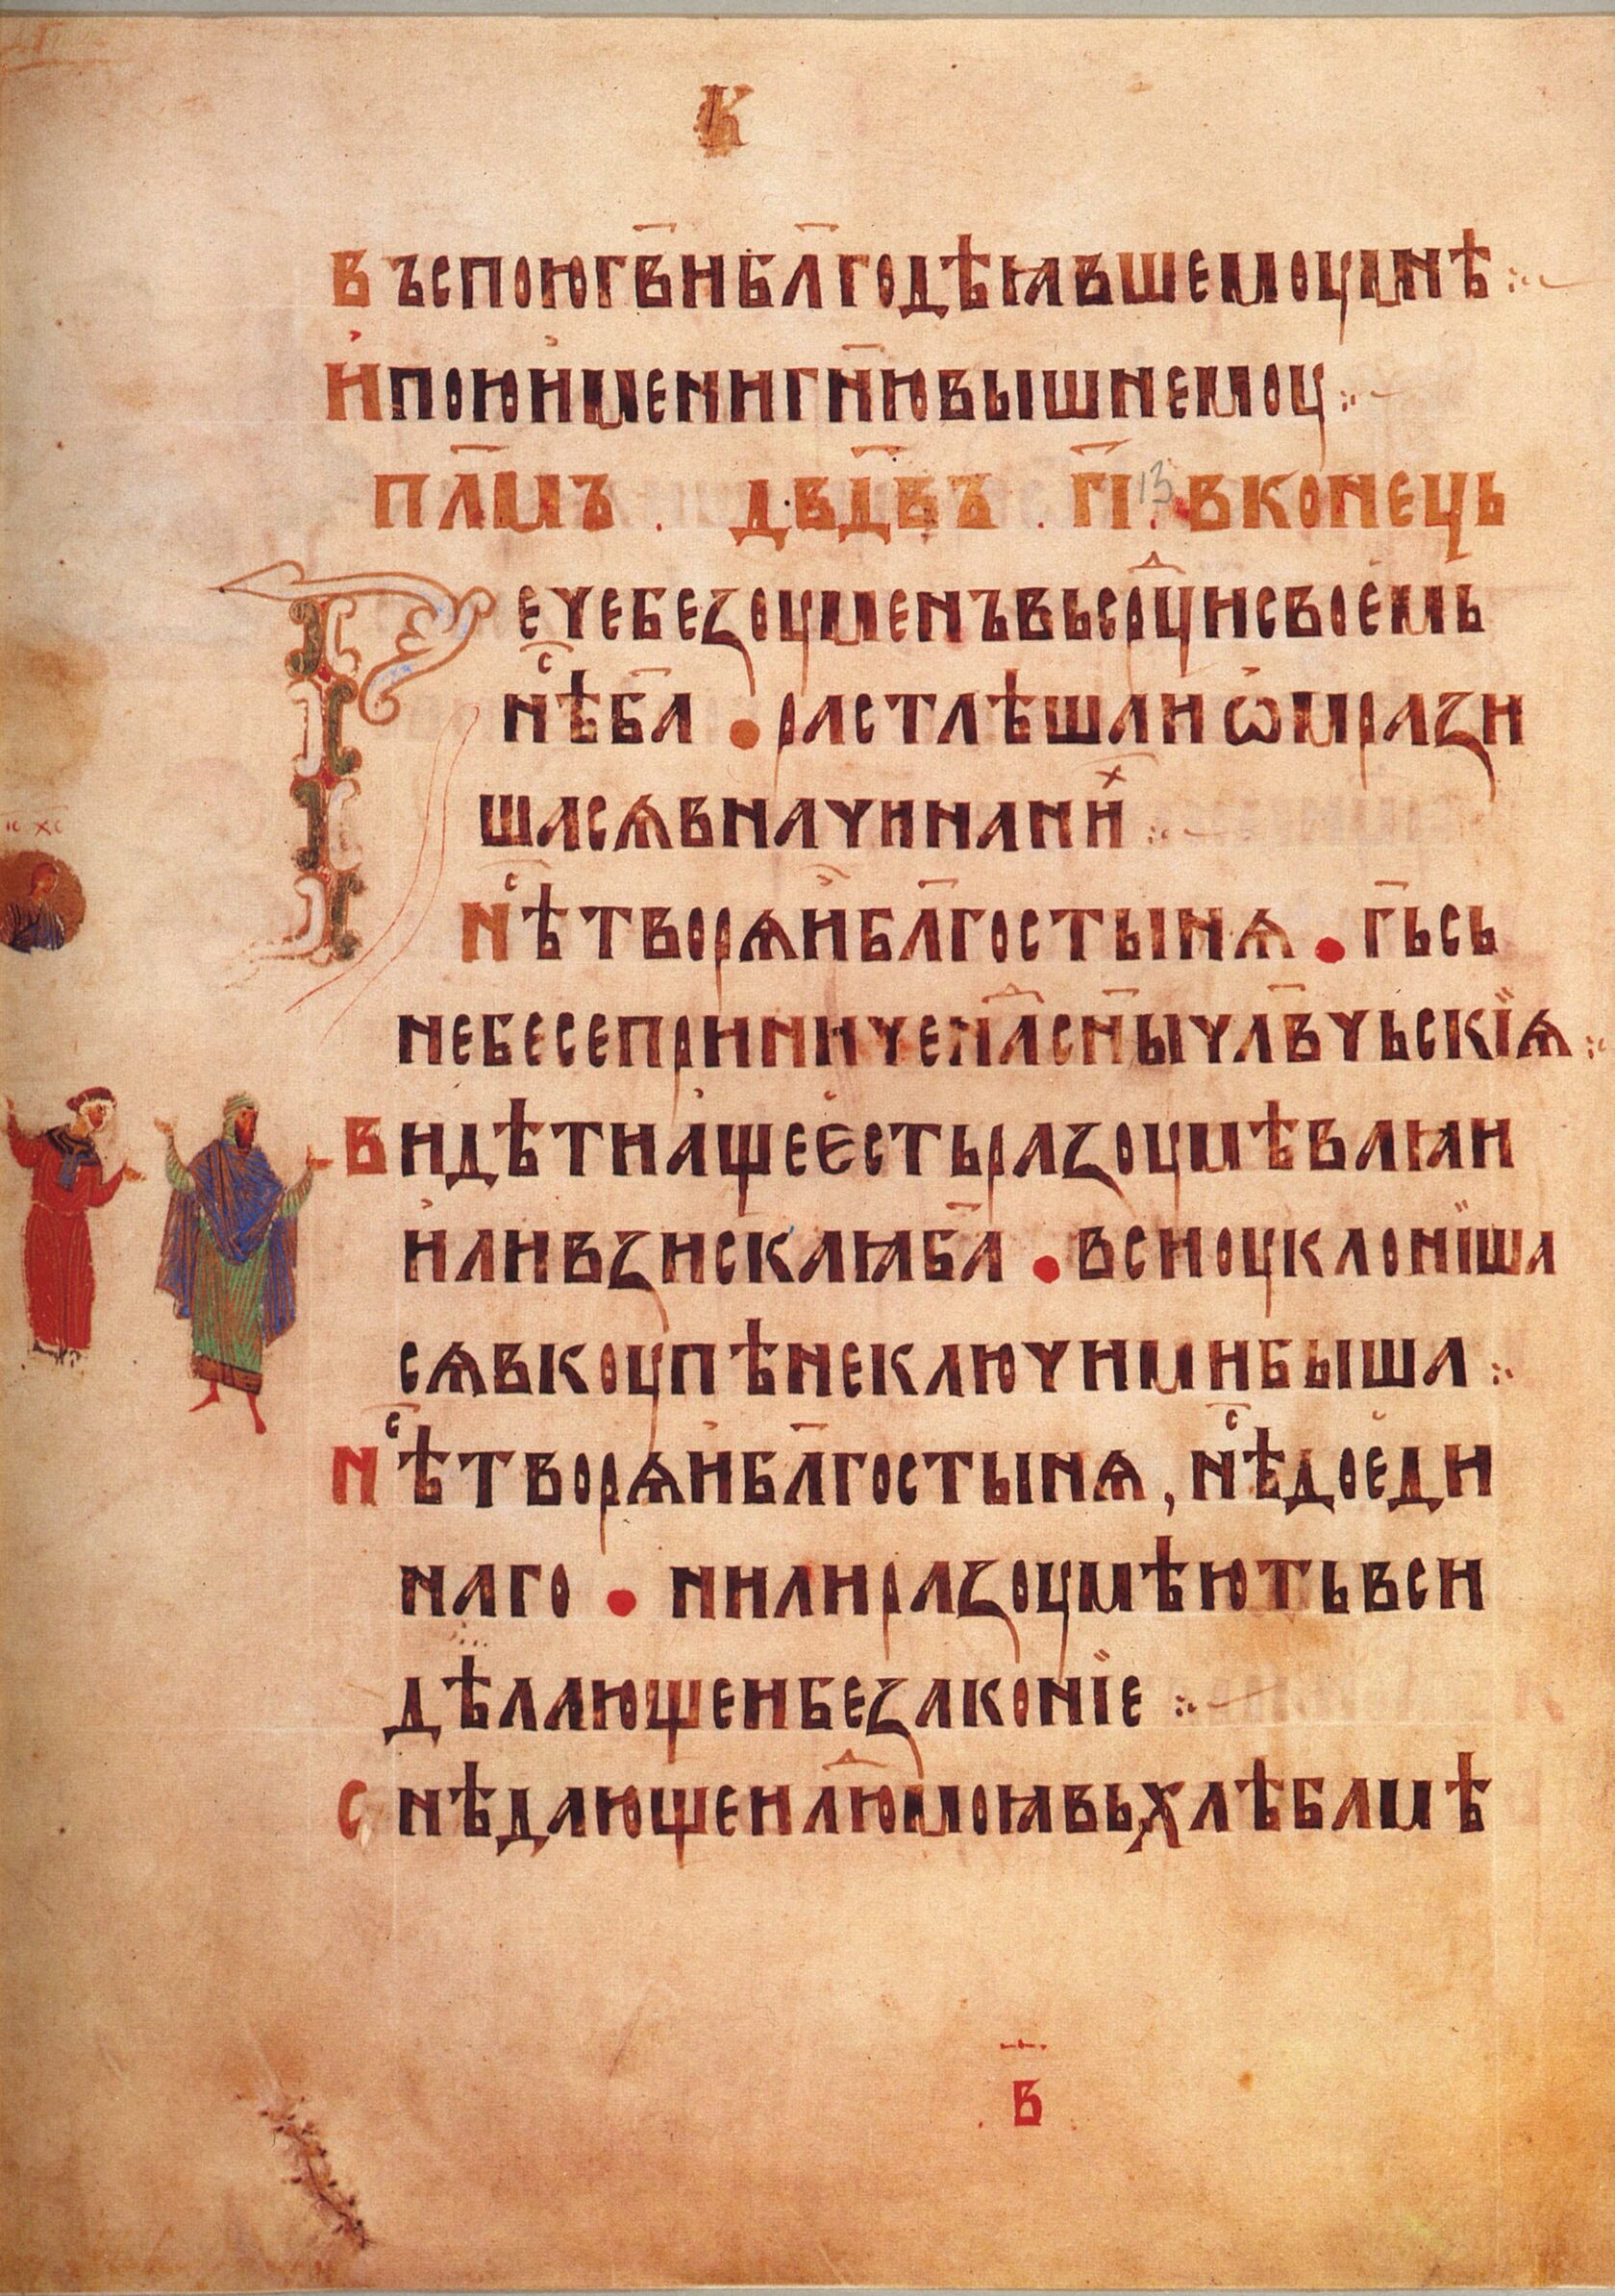 К
въспою гв҃и бл҃годѣꙗвшемоу мнѣ
и пою имени гн҃ю вышнемоу
пл҃мъ дв҃дв҃ъ г҃і 13 в конець
Рече безоуменъ вь срⷣци своемь
нⷭ҇ѣ б҃а • растлѣша и ѡмрази
ша сѧ в начинаниⷯ
нⷭ҇ѣ творѧи бл҃гостынѧ • г҃ь сь
небесе приниче нⷣа с҃ны чл҃вчьскїѧ
видѣти аще есть разоумѣваꙗи
или взискаꙗ б҃а • вси оуклонїша
сѧ вкоупѣ неключими быша
нⷭ҇ѣ творѧи бл҃гостынѧ, нⷭ҇ѣ до еди
наго • ни ли разоумѣють вси
дѣлающеи безаконїе
снѣдающеи люⷣ моꙗ вь хлѣба мѣ
ІС ХС
в҃